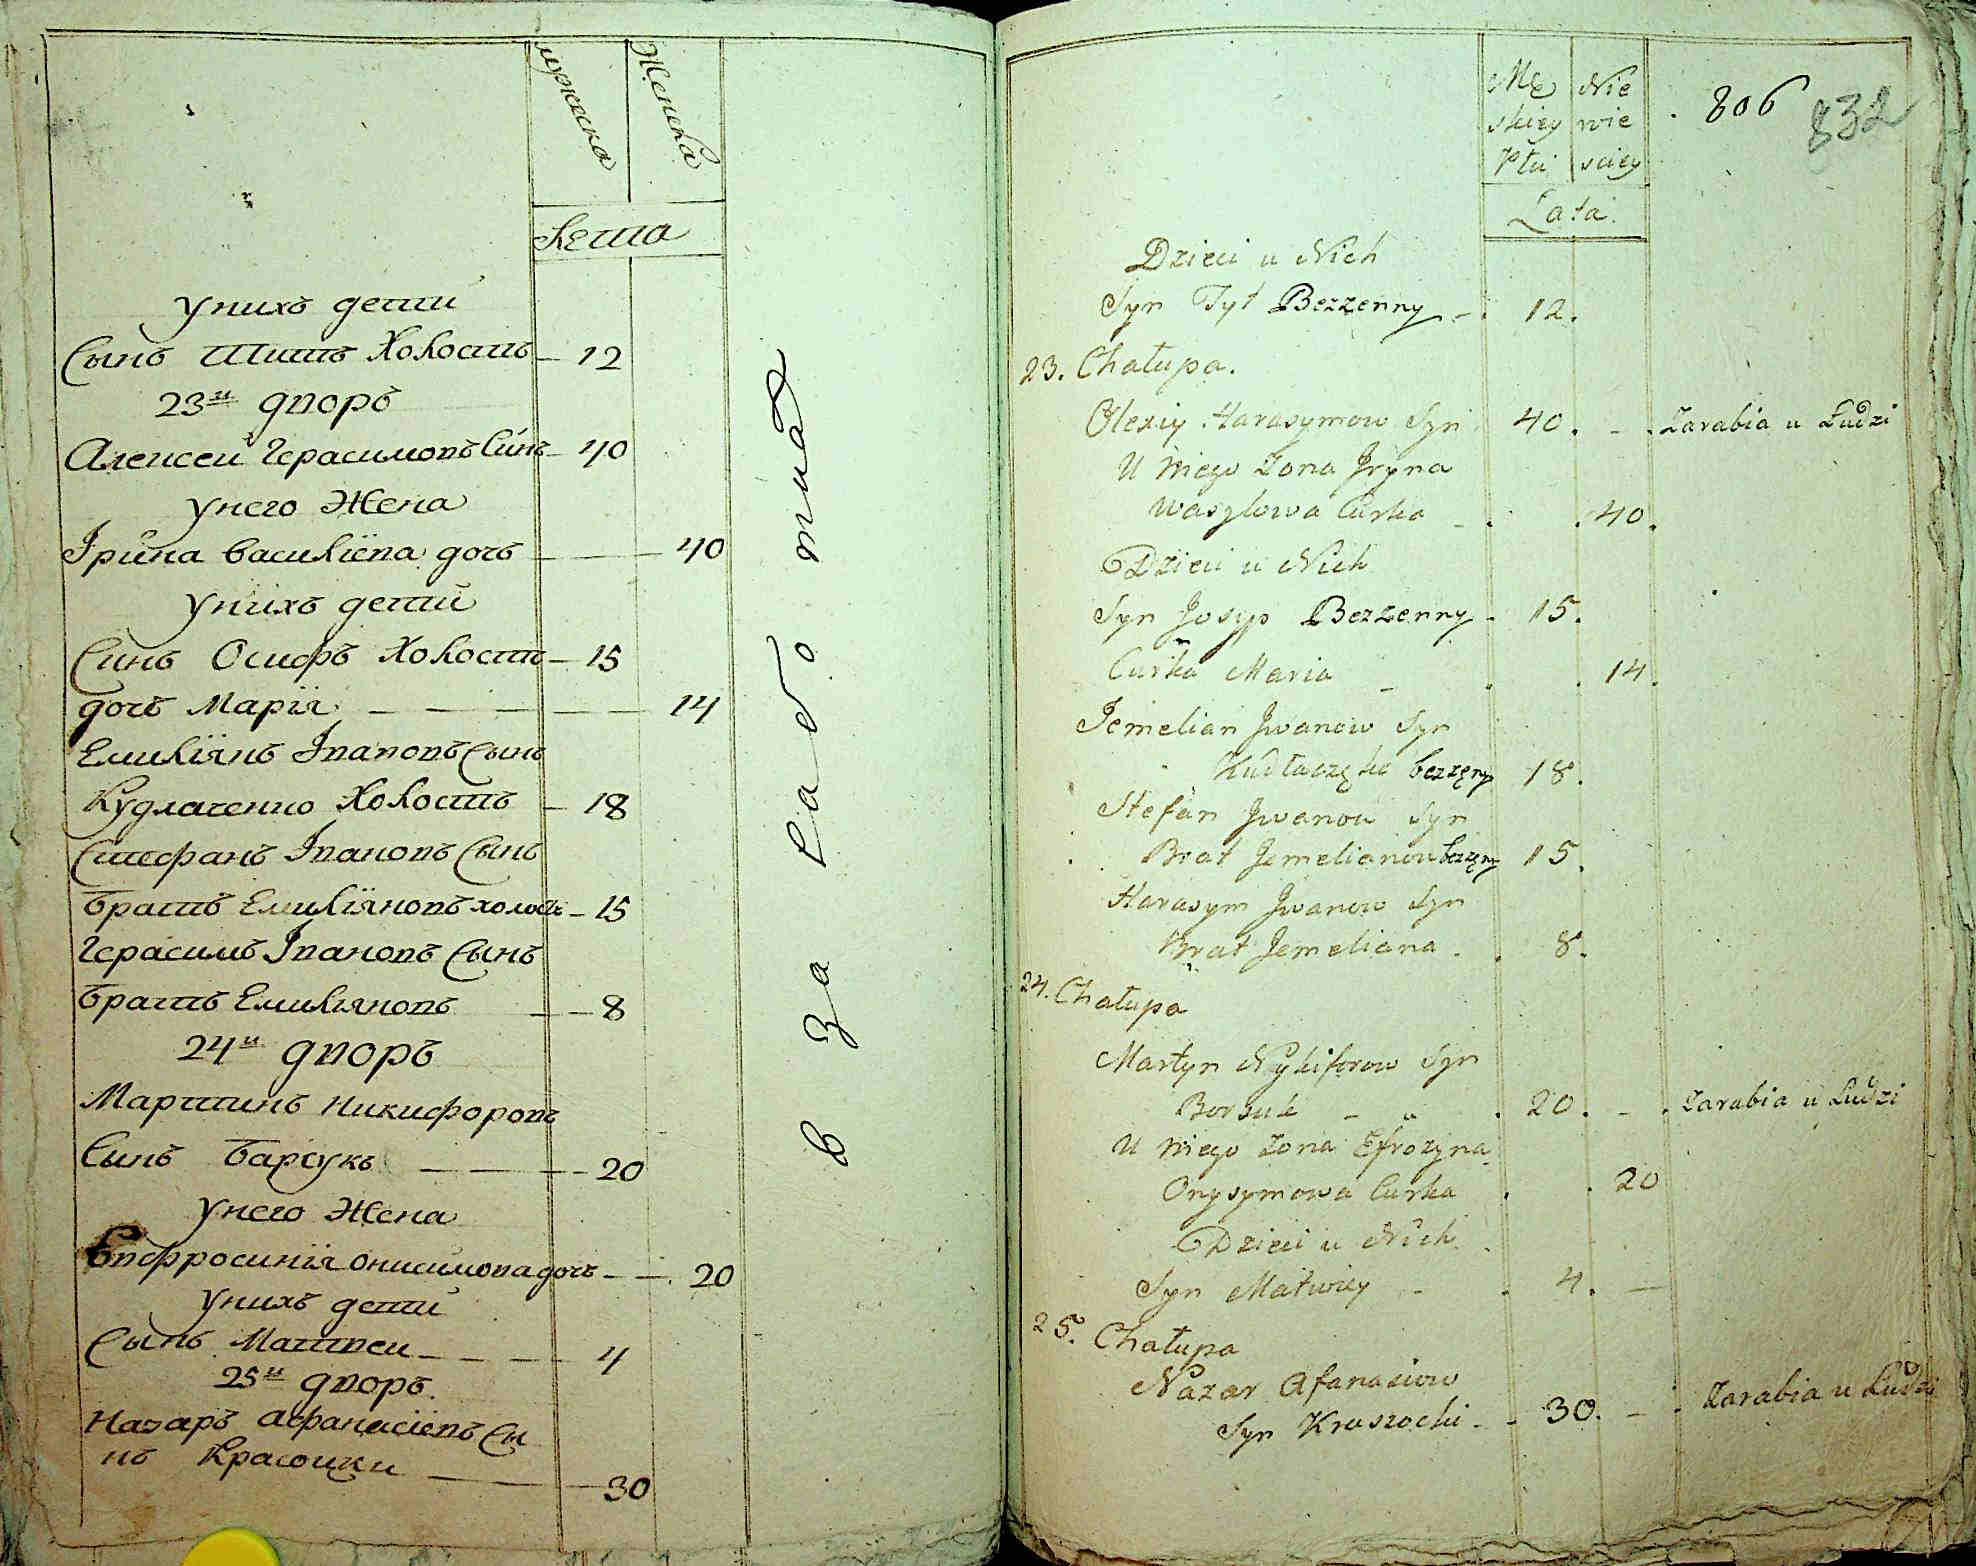 мужеска
Женска
лета
у нихъ детей
Сынъ Титъ Холостъ 12
23й дворъ
Алексей Герасимовъ Синъ 40
у него Жена
Ірина Василіева дочь 40
у нихъ детей
Синъ Осифъ Холостъ 15
дочь Марія 14
Емиліянъ Івановъ Сынъ
Кудлаченко Холостъ 18
Стефанъ Івановъ Сынъ
братъ Емиліяновъ холостъ 15
Герасимъ Івановъ Сынъ
братъ Емиліяновъ 8
24й дворъ
Мартинъ Никифоровъ
Сынъ Барсукъ 20
у него Жена
Евфросинія Онисимова дочь 20
у нихъ детей
Сынъ Матвеи 4
25й дворъ
Назаръ Афанасіевъ Сы
нъ Красоцки 30
в Заработках
Mę
skiey
Płci
Nie
wie
sciey
Lata
806
832
Dzieci u Nich
Syn Tyt Bezzenny 12.
23. Chałupa.
Olexiy Harasymow Syn 40. Zarabia u Ludzi
U Niego Zona Jryna
Wasylowa Curka 40.
Dzieci u Nich
Syn Josyp Bezzenny 15.
Curka Maria 14.
Jemelian Jwanow Syn
Kudłaczęko bezzęny 18.
Stefan Jwanow Syn
Brat Jemelianow bezzęny 15.
Harasym Jwanow Syn
Brat Jemeliana 8.
24. Chałupa
Martyn Nykiforow Syn
Borsuk 20. Zarabia u Ludzi
U Niego Zona Efrozyna
Onysymowa Curka 20
Dzieci u Nich
Syn Matwiey 4.
25. Chałupa
Nazar Afanasiow
Syn Kraszocki 30. Zarabia u Ludzi